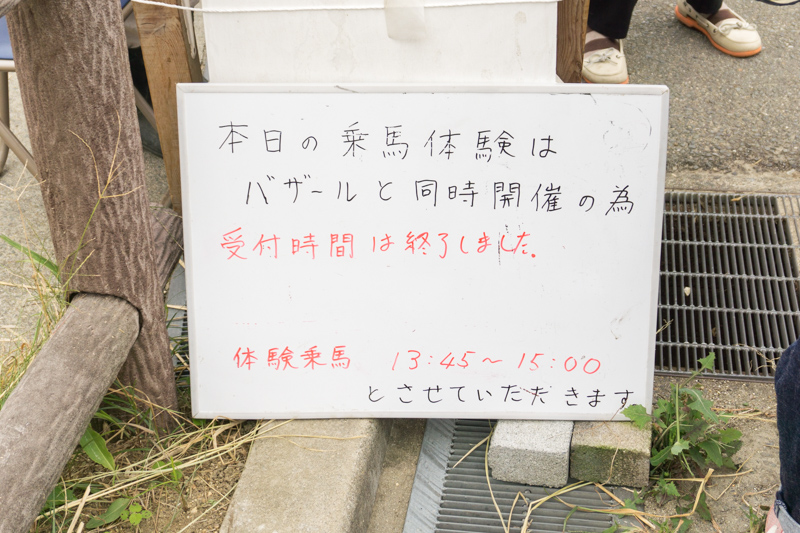 本日の乗馬体験は
バザールと同時開催の為
受付時間は終了しました。
体験乗馬 13:45〜15:00
とさせていただきます